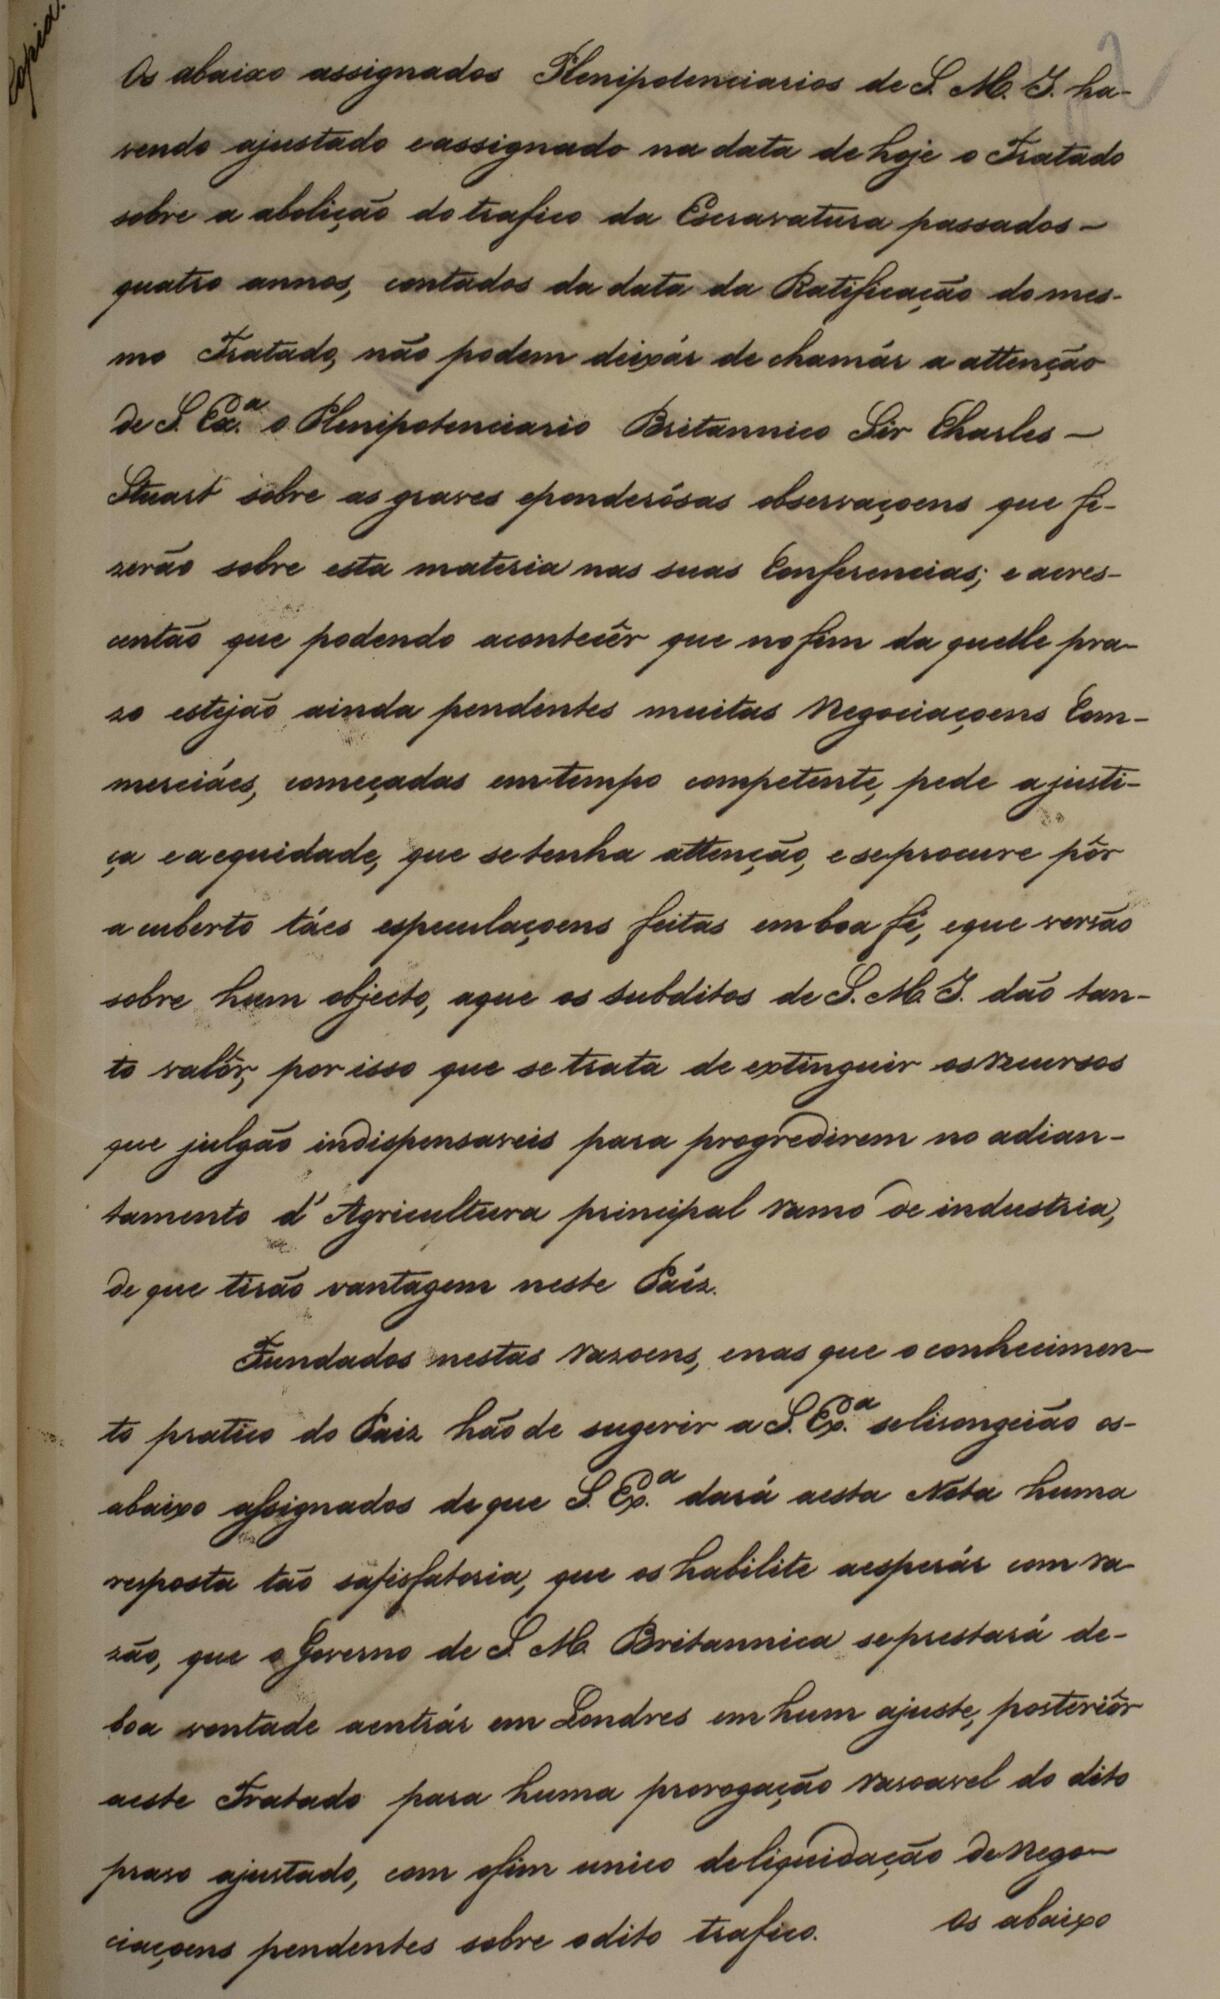 Copia.
Os abaixo assignados Plenipotenciarios de S. M. I. ha-
vendo ajustado e assignado na data de hoje o Tratado
sobre a abolição do trafico da Escravatura passados -
quatro annos, contados da data da Ratificação do mes-
mo Tratado, não podem deixár de chamár a attenção
de S. Ex.ª o Plenipotenciario Britannico Sir Charles -
Stuart sobre as graves e ponderósas observaçoens que fi-
zerão sobre esta materia nas suas Conferencias; e acres-
centão que podendo acontecêr que no fim da quelle pra-
zo estejão ainda pendentes muitas Negociaçoens Com-
merciáes, começadas em tempo competente, pede a justi-
ça e a equidade, que se tenha attenção, e se procure pôr
a cuberto táes especulaçoens feitas em boa fé, e que versão
sobre hum objecto, a que os subditos de S. M. I. dão tan-
to valôr, por isso que se trata de extinguir os recursos
que julgão indispensaveis para progredirem no adian-
tamento d'Agricultura principal ramo de industria,
de que tirão vantagem neste Paíz.
Fundados nestas razoens, e nas que o conhecimen-
to pratico do Paiz hão de sugerir a S. Ex.ª se lisongeião os-
abaixo assignados de que S. Ex.ª dará a esta Nota huma
resposta tão satisfatoria, que os habilite a esperár com ra-
zão, que o Governo de S. M. Britannica se prestará de-
boa vontade a entrár em Londres em hum ajuste, posteriôr
a este Tratado para huma prorogação rasoavel do dito
praso ajustado, com o fim unico de liquidação de Nego-
ciaçoens pendentes sobre o dito trafico. Os abaixo